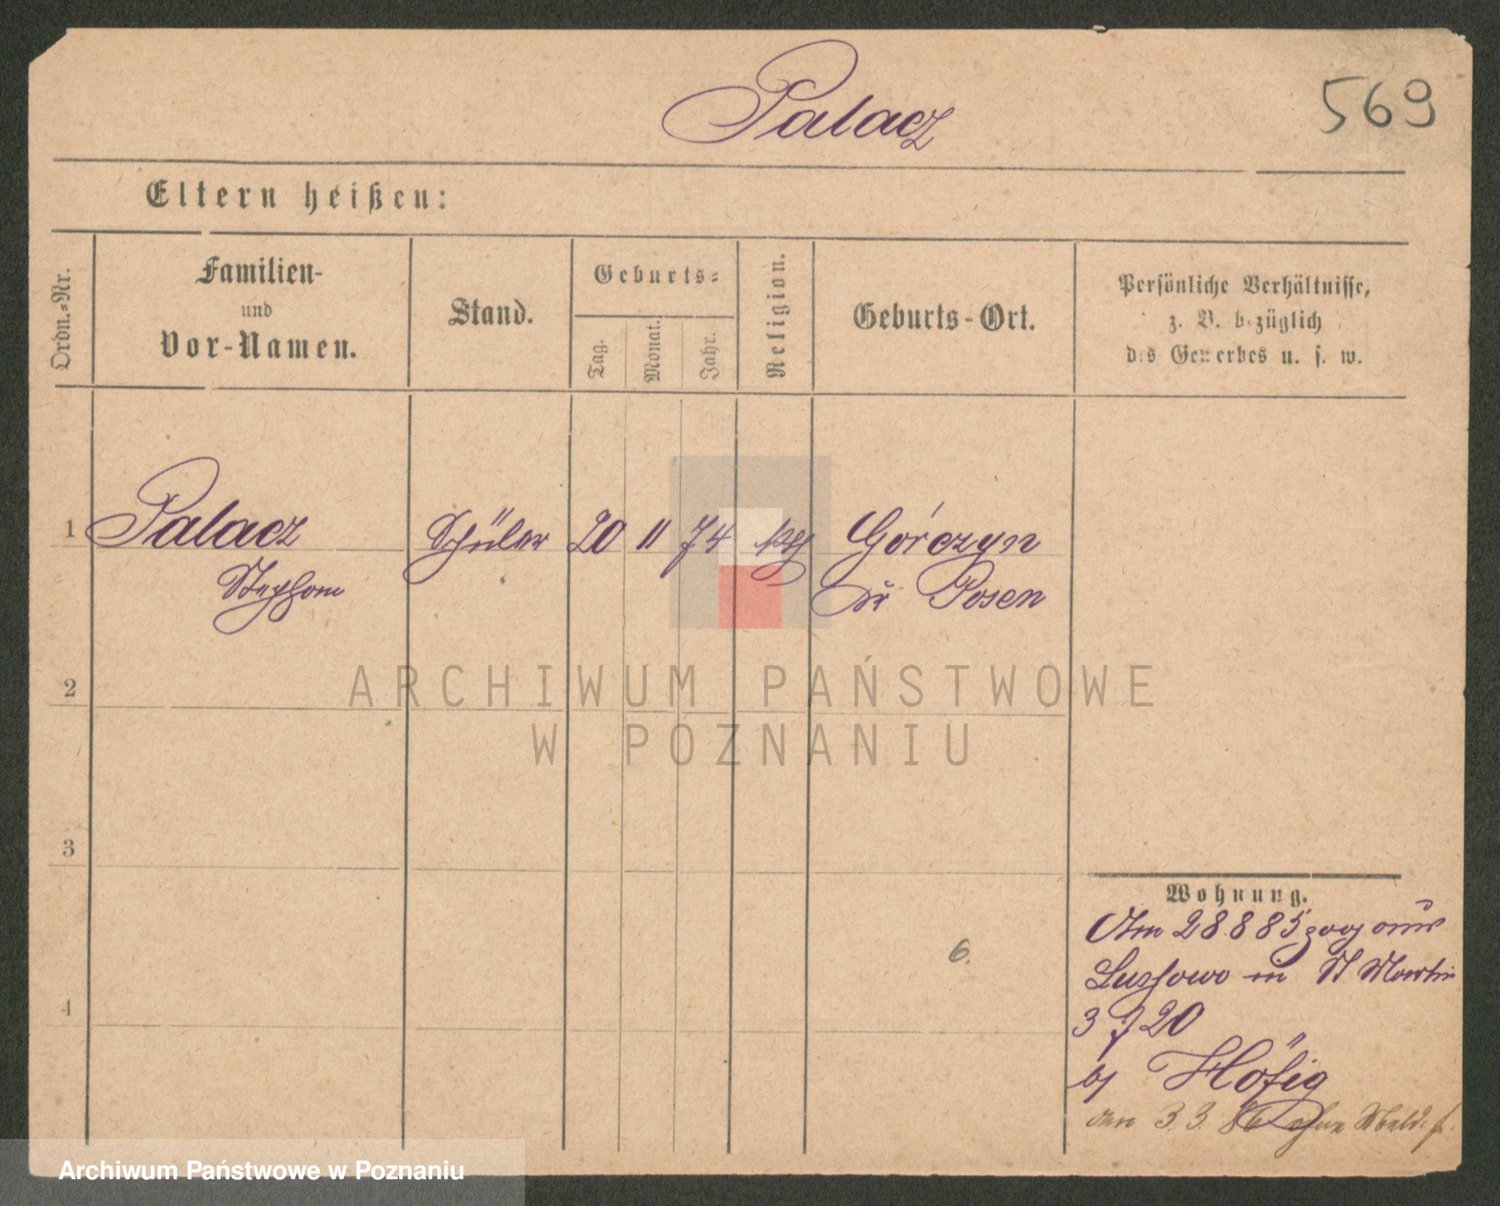 Palacz
569
Eltern heißen:
Ordn.-Nr.
Familien-
und
Vor-Namen.
Stand.
Geburts-
Tag.
Monat.
Jahr.
Religion.
Geburts-Ort.
Persönliche Verhältnisse,
z. B. bezüglich
des Gewerbes u. s. w.
1 Palacz Schüler 20 11 74 kth Górczyn
Stephan Kr Posen
2
ARCHIWUM PAŃSTWOWE
W POZNANIU
3
Wohnung.
Am 28.8 85 zog aus
6.
Lussowo in St Martin
4
3 J 20
bj Höfig
am 3.3. 86 ohne Meld.
Archiwum Państwowe w Poznaniu